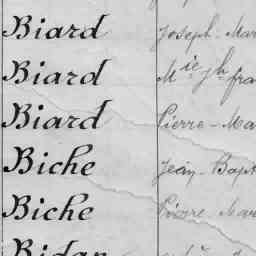 Biard Joseph-Mar
Biard M.ie Jh fra
Biard Pierre-Ma
Biche Jean-Bapt
Biche Pierre-Mar
Bidan